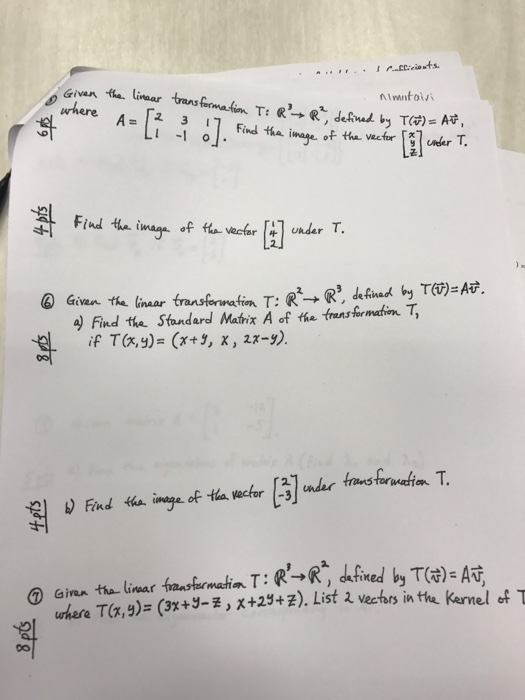 Given the linear transformation T: ℝ³→ℝ², defined by T(v⃗) = Av⃗,
6 pts where A = [2 3 1; 1 -1 0]. Find the image of the vector [x; y; z] under T.
4 pts Find the image of the vector [1; 4; 2] under T.
⑥ Given the linear transformation T: ℝ²→ℝ³, defined by T(v⃗)=Av⃗.
a) Find the Standard Matrix A of the transformation T,
8 pts if T(x,y) = (x+y, x, 2x-y).
4 pts b) Find the image of the vector [2; -3] under transformation T.
⑦ Given the linear transformation T: ℝ³→ℝ², defined by T(v⃗)=Av⃗,
where T(x,y)= (3x+y-z, x+2y+z). List 2 vectors in the Kernel of T
8 pts